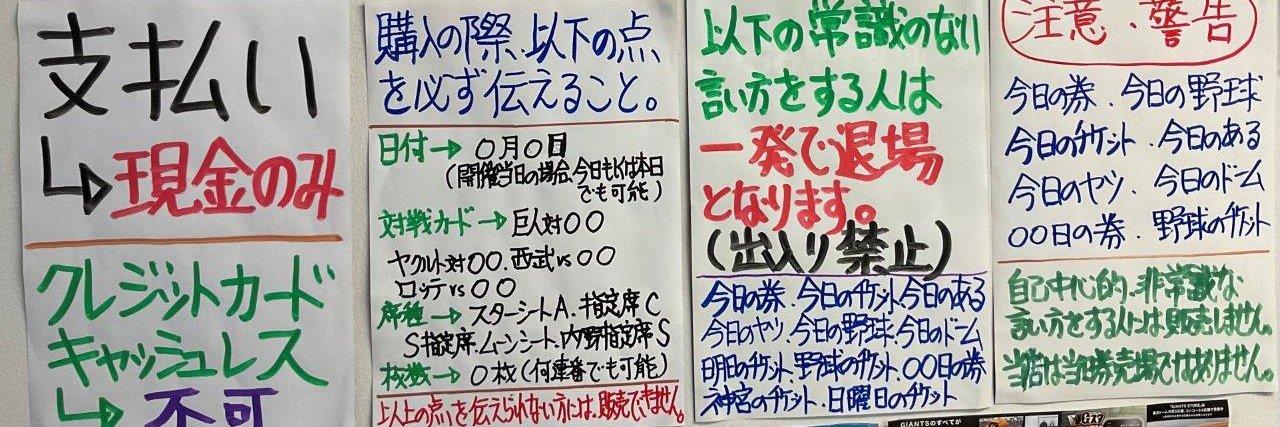 支払い
↳現金のみ
クレジットカード
キャッシュレス
↳不可
購入の際、以下の点
を必ず伝えること。
日付→ 〇月〇日
(開催当日の場合、今日もしくは本日
でも可能)
対戦カード→巨人対〇〇
ヤクルト対〇〇、西武vs〇〇
ロッテvs〇〇
席種→スターシートA、指定席C
S指定席、ムーンシート、内野指定席S
枚数→〇枚(何連番でも可能)
以上の点を伝えられない方には、販売できません。
以下の常識のない
言い方をする人は
一発で退場
となります。
(出入り禁止)
今日の券、今日のチケット、今日のある
今日のヤツ、今日の野球、今日のドーム
明日のチケット、野球のチケット、〇〇日の券
神宮のチケット、日曜日のチケット
注意、警告
今日の券、今日の野球
今日のチケット、今日のある
今日のヤツ、今日のドーム
〇〇日の券、野球のチケット
自己中心的、非常識な
言い方をする人には販売しません。
当店は当日券売場ではありません。
GIANTSのすべてが
GIANTS STORE